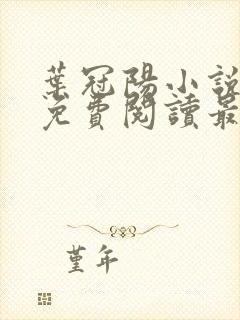 葉冠陽小說
免費閱讀最
堇年